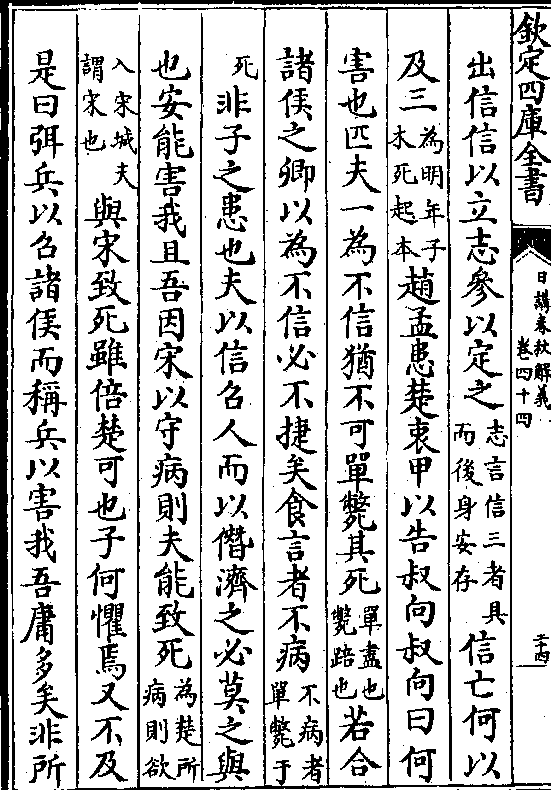 欽定四庫全書
日講春秋解義
卷四十四
二十四
出信信以立志參以定之志言信三者具而後身安存信亡何以
及三為明年子木死起本趙孟患楚衷甲以告叔向叔向曰何
害也匹夫一為不信猶不可單斃其死單盡也斃踣也若合
諸侯之卿以為不信必不捷矣食言者不病不病者單斃于
死非子之患也夫以信召人而以僭濟之必莫之與
也安能害我且吾因宋以守病則夫能致死為楚所病則欲
入宋城夫謂宋也與宋致死雖倍楚可也子何懼焉又不及
是曰弭兵以召諸侯而稱兵以害我吾庸多矣非所